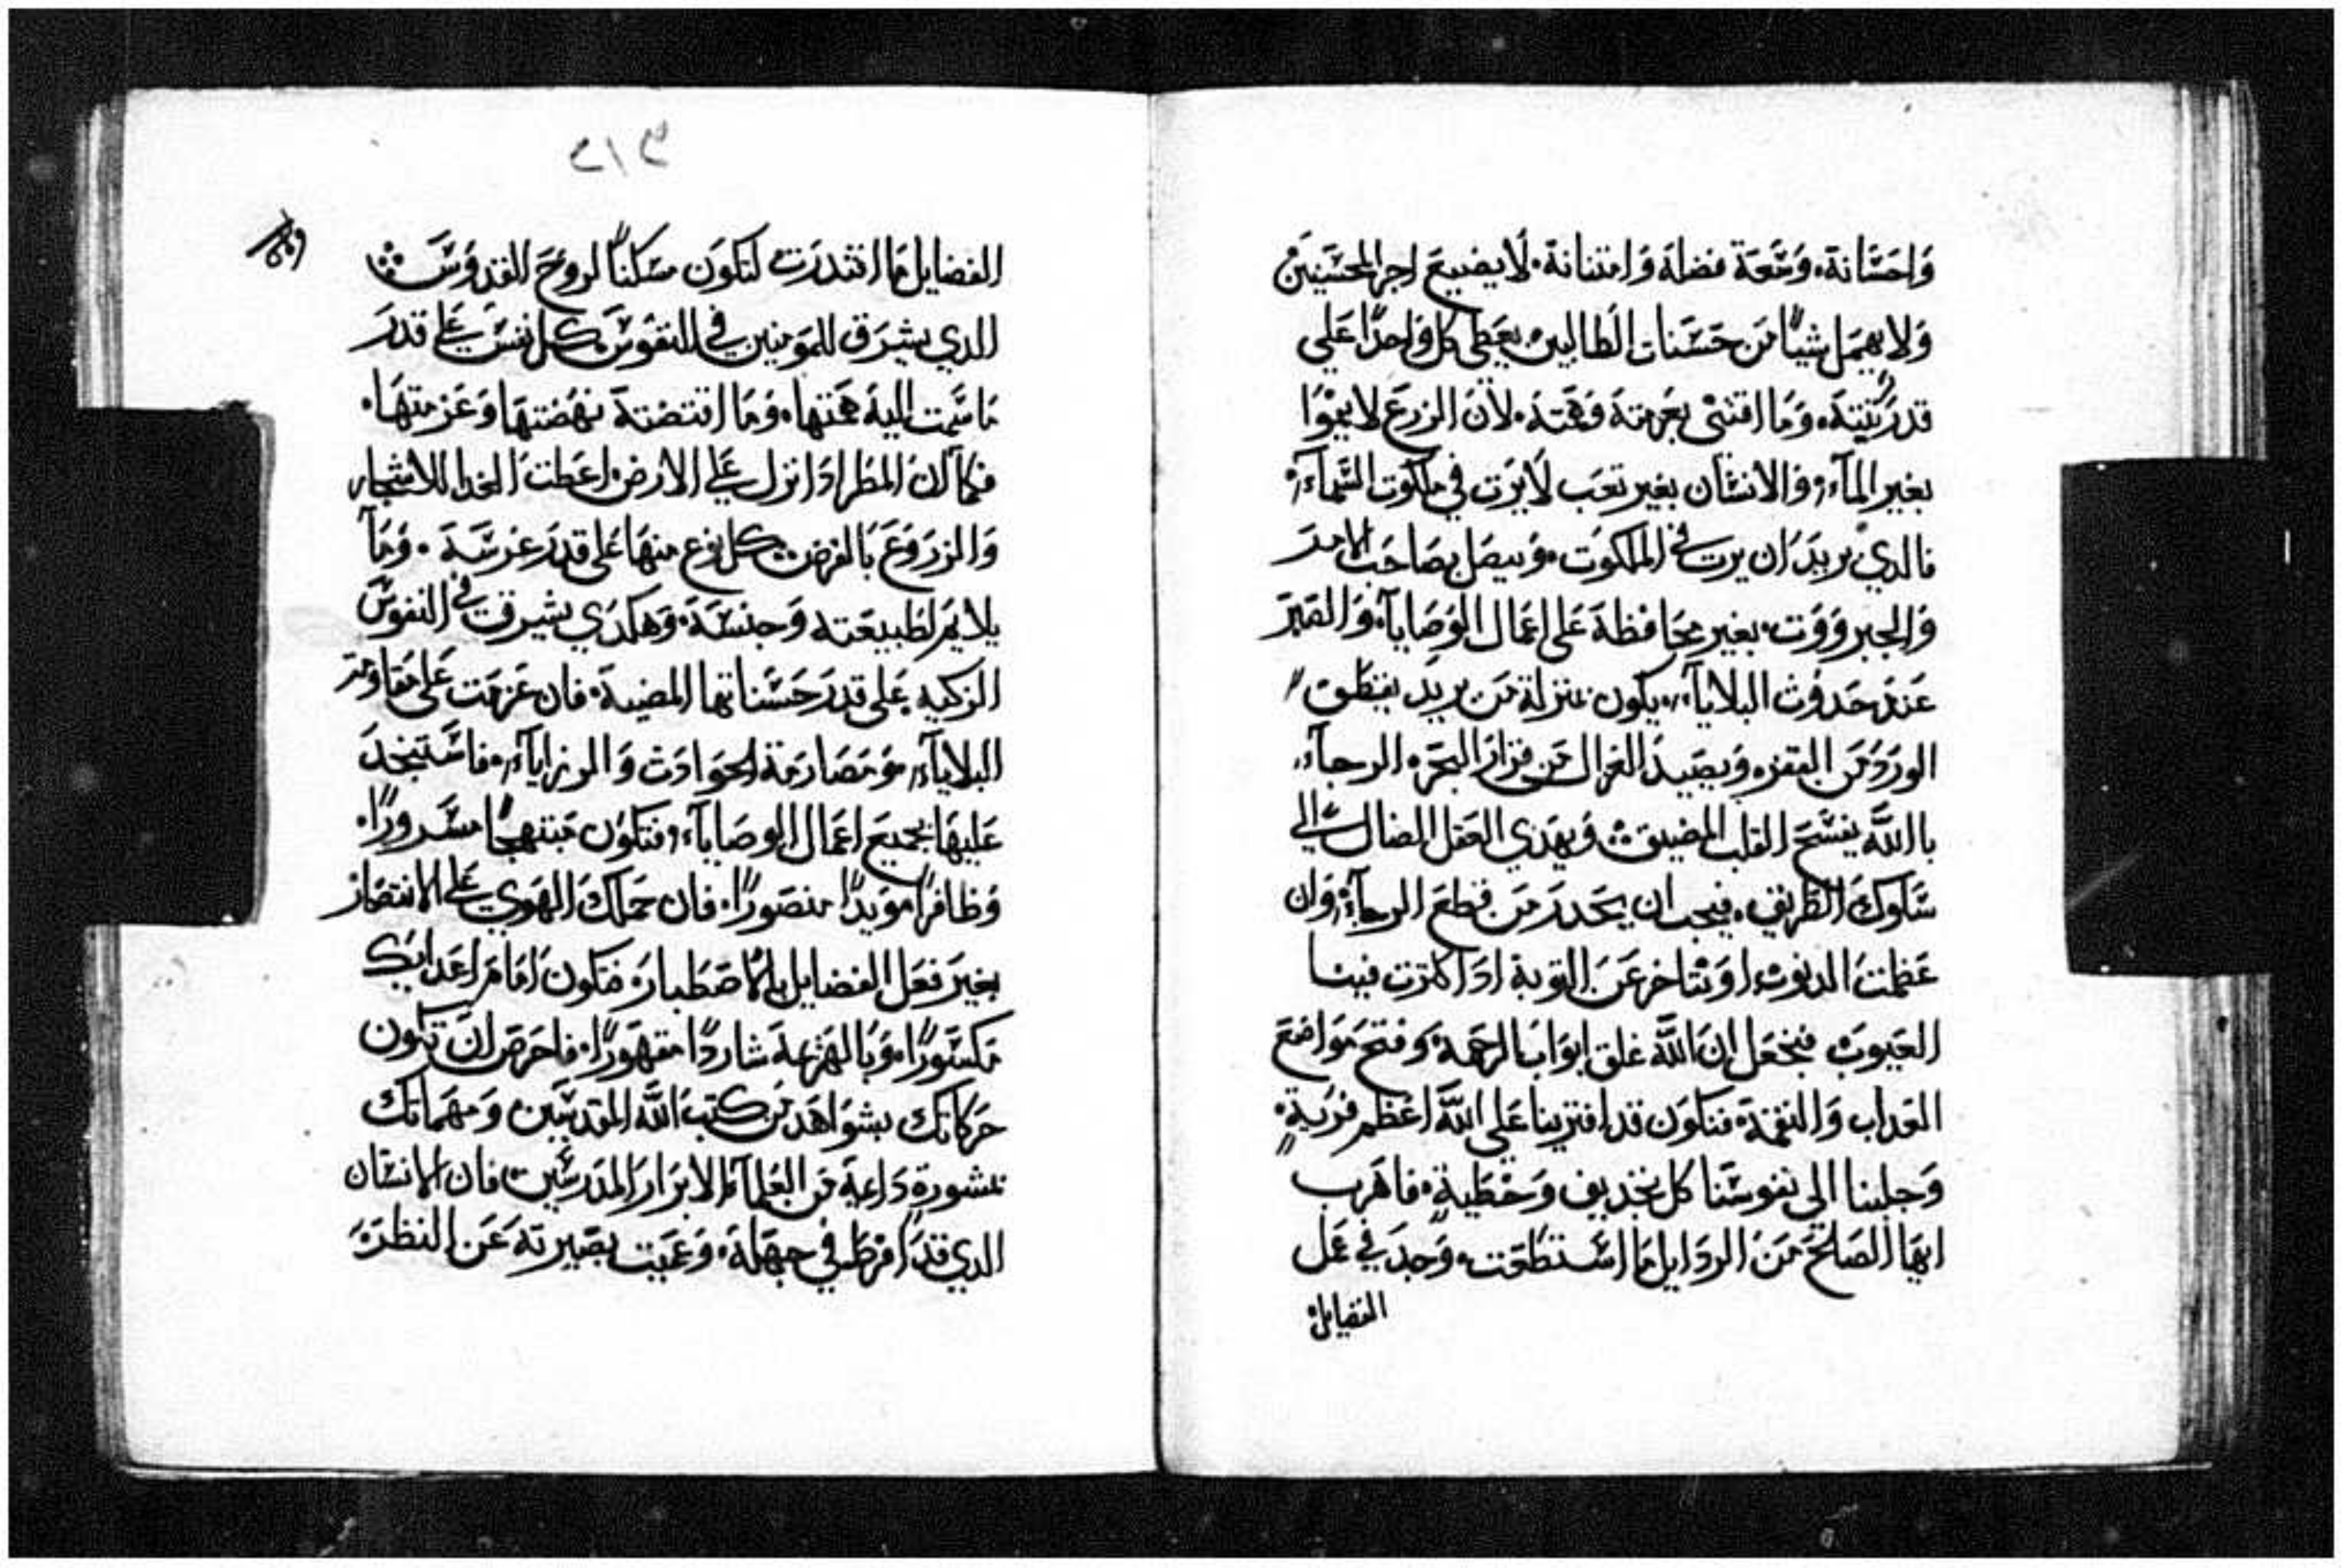 وَاحسَانة، وَسَعة فضلة وَامتنانة، لا يضيع اجر المحسنين
وَلا يهمل شياً من حسَنات الطالبين، يعطي كل وَاحدًا علي
قدر نيته، وَما اقتني بعزمته وَهمته، لان الزرع لا ينموا
بغير المآء، وَالانسَان بغير تعب لا يرت في ملكوت السَمآء،
فالدي يريد ان يرت في الملكوت، وَيصل بصاحب الامر
وَالجبروَوت، بغير محافظة علي اعمال الوَصايآء، وَالصَبر
عند حدوُث البلايآء، يكون بمنزلة من يريد يقطف
الورد من القفر، وَيصيد الغزال من قرار البحر، الرجآء
باالله يفسَح القلب المضيق، وَيهدي العقل الضال الي
سَلوك الطريق، فيجب ان يحدر من قطع الرجآء، وَان
عظمت الدنوب، اوَ نتاخر عن التوبة ادا كترت فينا
العيوب، فنجعل ان الله غلق ابوَاب الرحمة، وَفتح موَاضع
العداب وَالنقمة، فنكون قد افترينا علي الله اعظم فرية،
وَجلبنا الي نفوسَنا كل تجديف وَخطية، فاهرب
ايها الصَالح من الردَايل ما استطعت، وَجد في عمل
الفضايل
٣١٢
الفضايل ما اقتدرت لتكون مسَكناً لروح القدوس
الدي يشرق للموَمنين في النفوسَ، كل نفسَ علي قدر
ما سَمت اليه همتها، وَما اقتضته نهضتها وَعزمتها،
فكما ان المطر ادا نزل علي الارض اعطت الغدا للاشجار
وَالزروَع بالغرض، كل نوع منها علي قدر غرسَه، وَمآ
يلايم لطبيعته وَجنسَة، وَهكدي يشرق في النفوسَ
الزكيه علي قدر حسَناتها المضية، فان عزمت علي مقاومة
البلايآء، وَمصَادمة الحوَادت وَالرزايآء، فاسَتنجد
عليها بجميع اعمال الوصَايآء، فتكون مبتهجًا مسَرورًا،
وَظافرًا موَيدًا منصَورًا، فان حملك الهوي علي الانتصَار
بغير فعل الفضايل بالاصَطبار، فتكون امام اعدايك
مكسَورًا، وَبالهزيمة شاردًا مقهورًا، فاحرص ان تكون
حركاتك بشوَاهد من كتب الله المقدسَين، وَمهماتك
بمشورة داعية من العلمآء الابرار المدرسَين، فان الانسَان
الدي قد افرط في جهلة، وَعميت بصيرته عن النظر